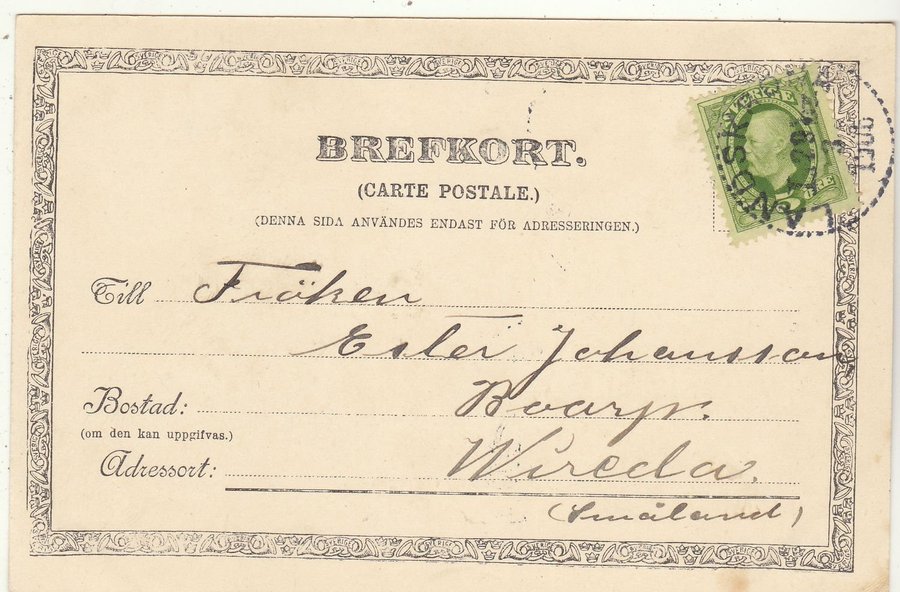 BREFKORT.
(CARTE POSTALE.)
(DENNA SIDA ANVÄNDES ENDAST FÖR ADRESSERINGEN.)
Till Fröken
Ester Johansson
Bostad: Boarp.
(om den kan uppgifvas.)
Adressort: Wireda.
(Småland)